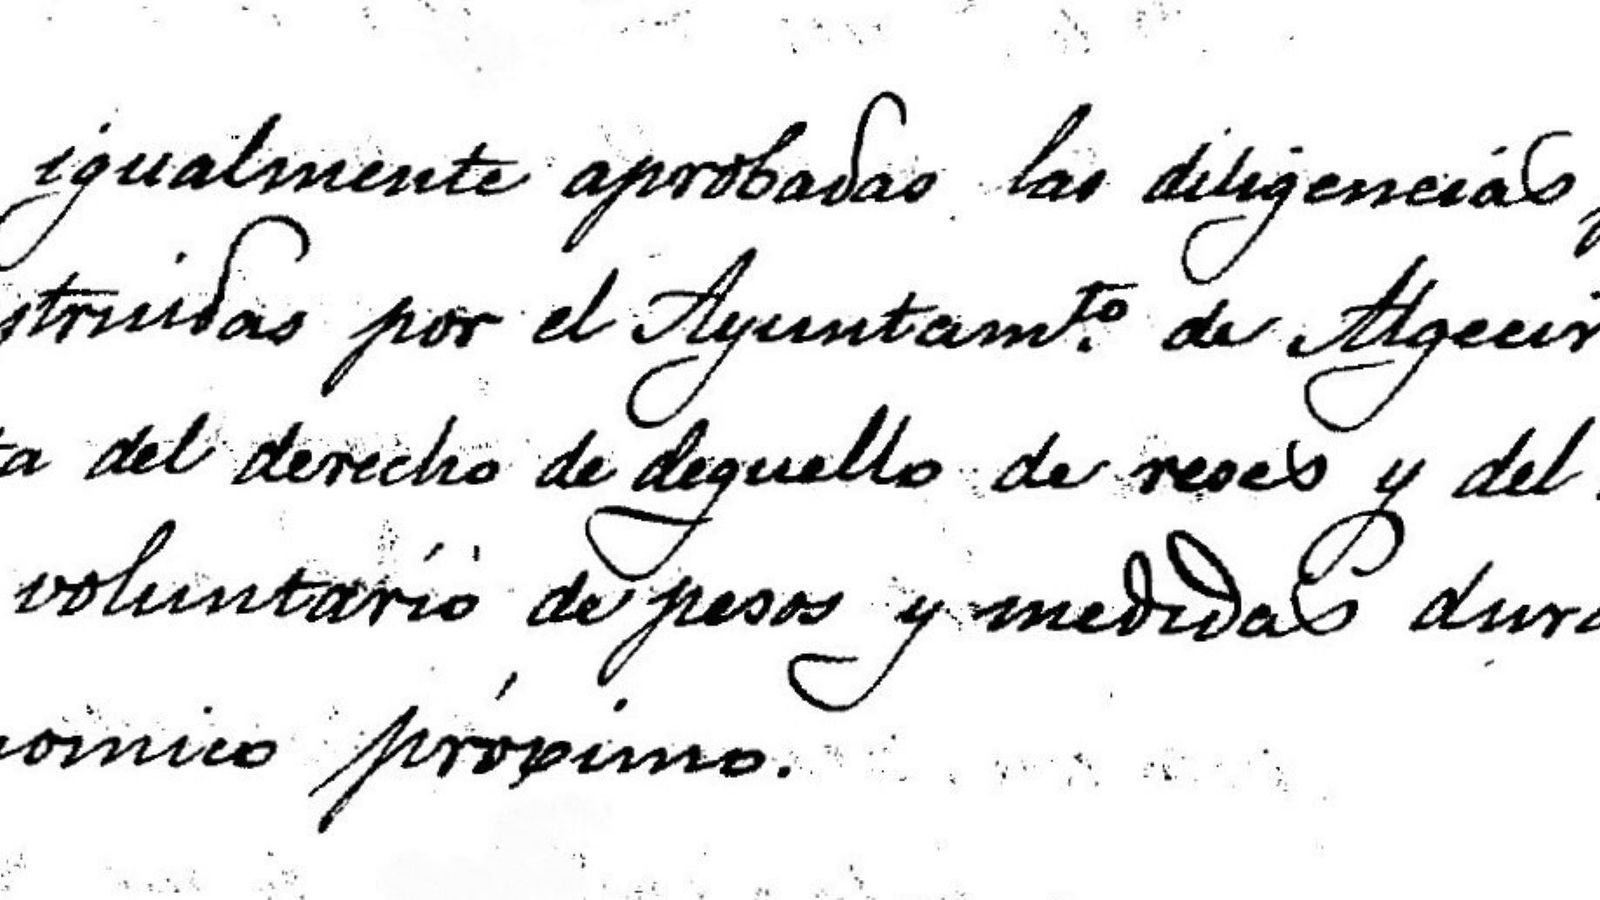 igualmente aprobadas las diligencias
struidas por el Ayuntam.to de Algecir
ta del derecho de deguello de reses y del
voluntario de pesos y medidas dura
nomico próximo.